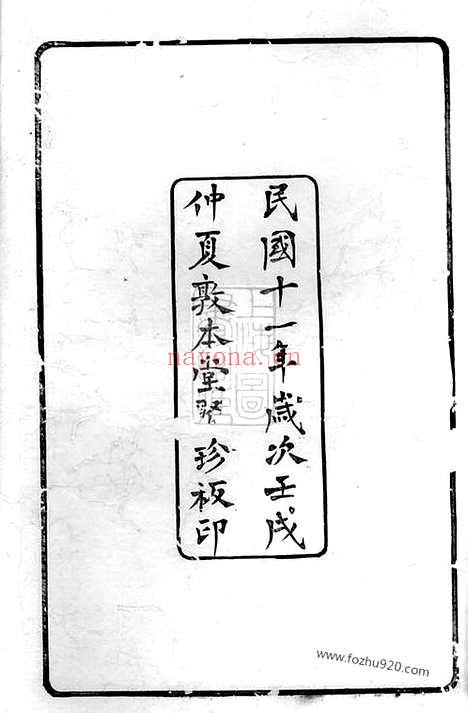 民國十一年歲次壬戌
仲夏敦本堂聚珍板印
nayona.cn
www.fozhu920.com